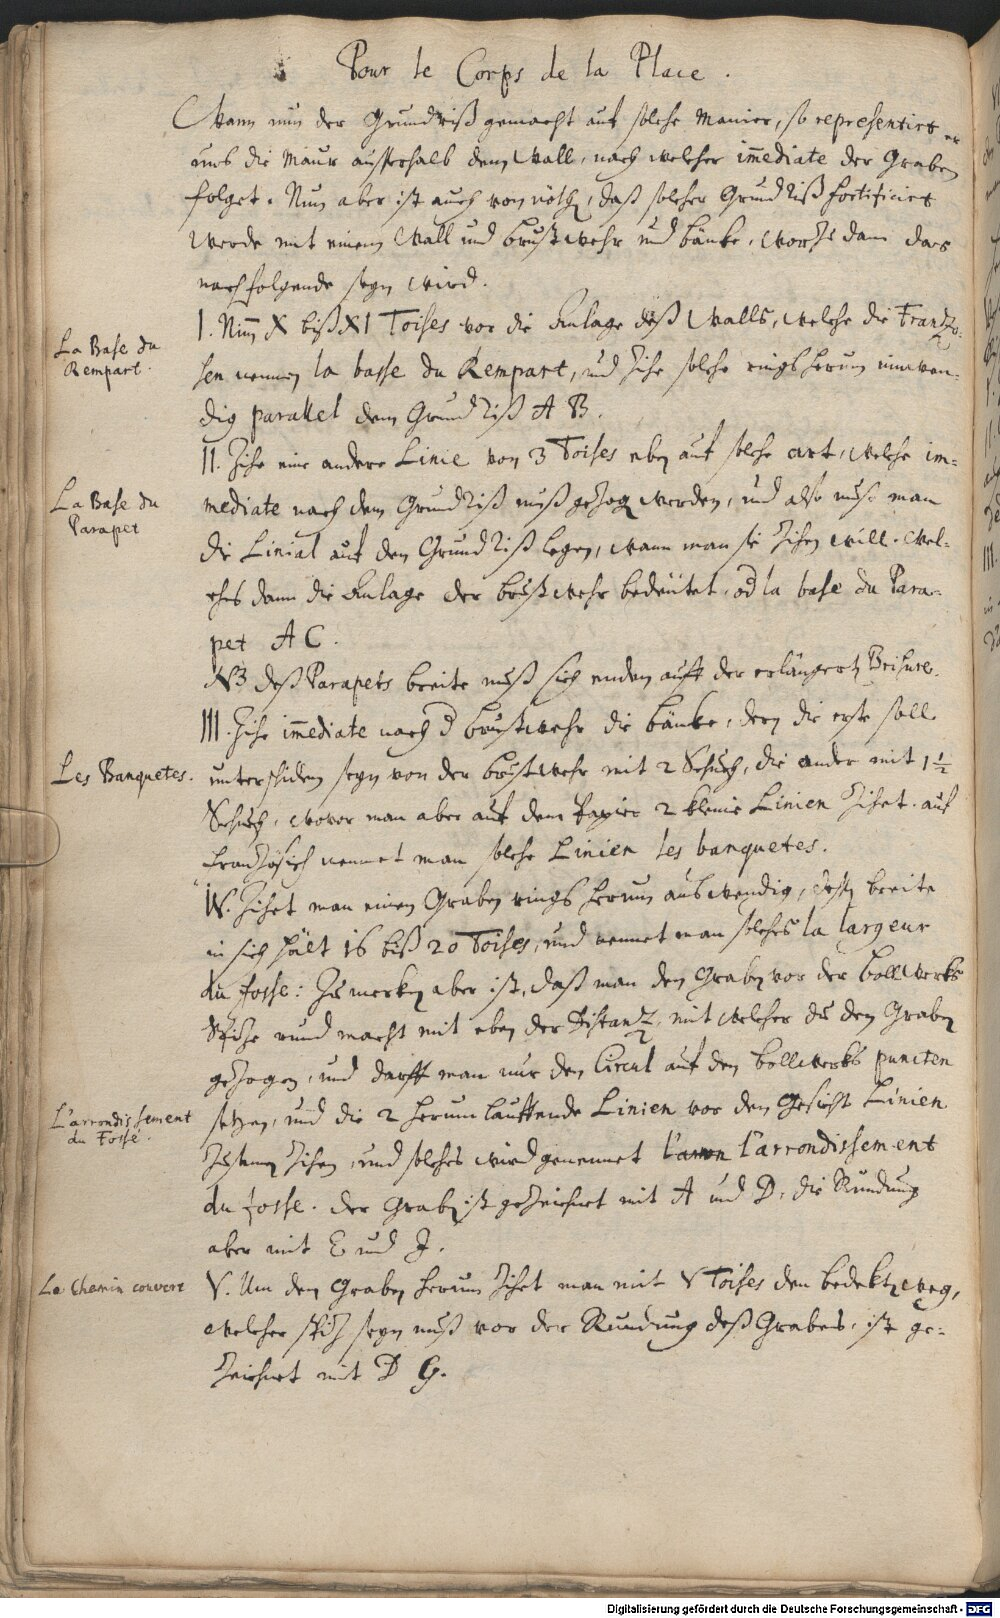 Pour le Corps de la Place.
Wann nun der Grundriß gemacht auf solche Manier, so repræsentirt er
uns die Maur ausserhalb dem Wall, nach welcher im̄ediate der Graben
folget. Nun aber ist auch von nöthen, daß solcher Grundriß fortificirt
werde mit einem Wall und brustwehr und bänke, worzu dann das
nachfolgende seyn wird.
La Base du
Rempart.
I. Nim̄ X biß XI Toises vor die Anlage deß Walls, welche die Frantzo-
sen nennen la basse du Rempart, und zihe solche rings herum inwen-
dig parallel dem Grundriß A B.
II. Zihe eine andere Linie von 3 Toises eben auf solche art, welche im-
La Base du
Parapet
mediate nach dem Grundriß muß gezogen werden, und also muß man
die Linial auf den Grundriß legen, wann man sie zihen will. Wel-
ches dann die Anlage der brustwehr bedeütet, od la base du Para-
pet A C.
NB deß Parapets breite muß sich enden auff der erlängerten Brisure.
III. Zihe im̄ediate nach d brustwehr die bänke, deren die erste soll
Les Banquetes.
unterschiden seyn von der brustwehr mit 2 Schuh, die ander mit 1 1/2
Schuh, wovor man aber auf dem Papier 2 kleine Linien zihet. auf
französisch nennet man solche Linien les banquetes.
IV. Zihet man einen Graben rings herum auswendig, dessen breite
in sich hält 16 biß 20 Toises, und nennet man solches la largeur
du fosse: Zu merken aber ist, daß man den Graben vor der bollwerks
Spize rund macht mit eben der Distantz, mit welcher du den Graben
gezogen, und darff man nur den Circul auf den bollwerks puncten
L'arrondissement
du Fosse.
setzen, und die 2 herumlauffende Linien vor den Gesicht Linien
zusamen zihen, und solches wird genennet l'arron l'arrondissement
du fosse. der Graben ist gezeichnet mit A und D, die Rundung
aber mit E und F.
Le Chemin couvert
V. Um den Graben herum zihet man mit V Toises den bedekten weg,
welcher spiz seyn muß vor der Rundung deß Grabens, ist ge-
zeichnet mit D G.
Digitalisierung gefördert durch die Deutsche Forschungsgemeinschaft - DFG